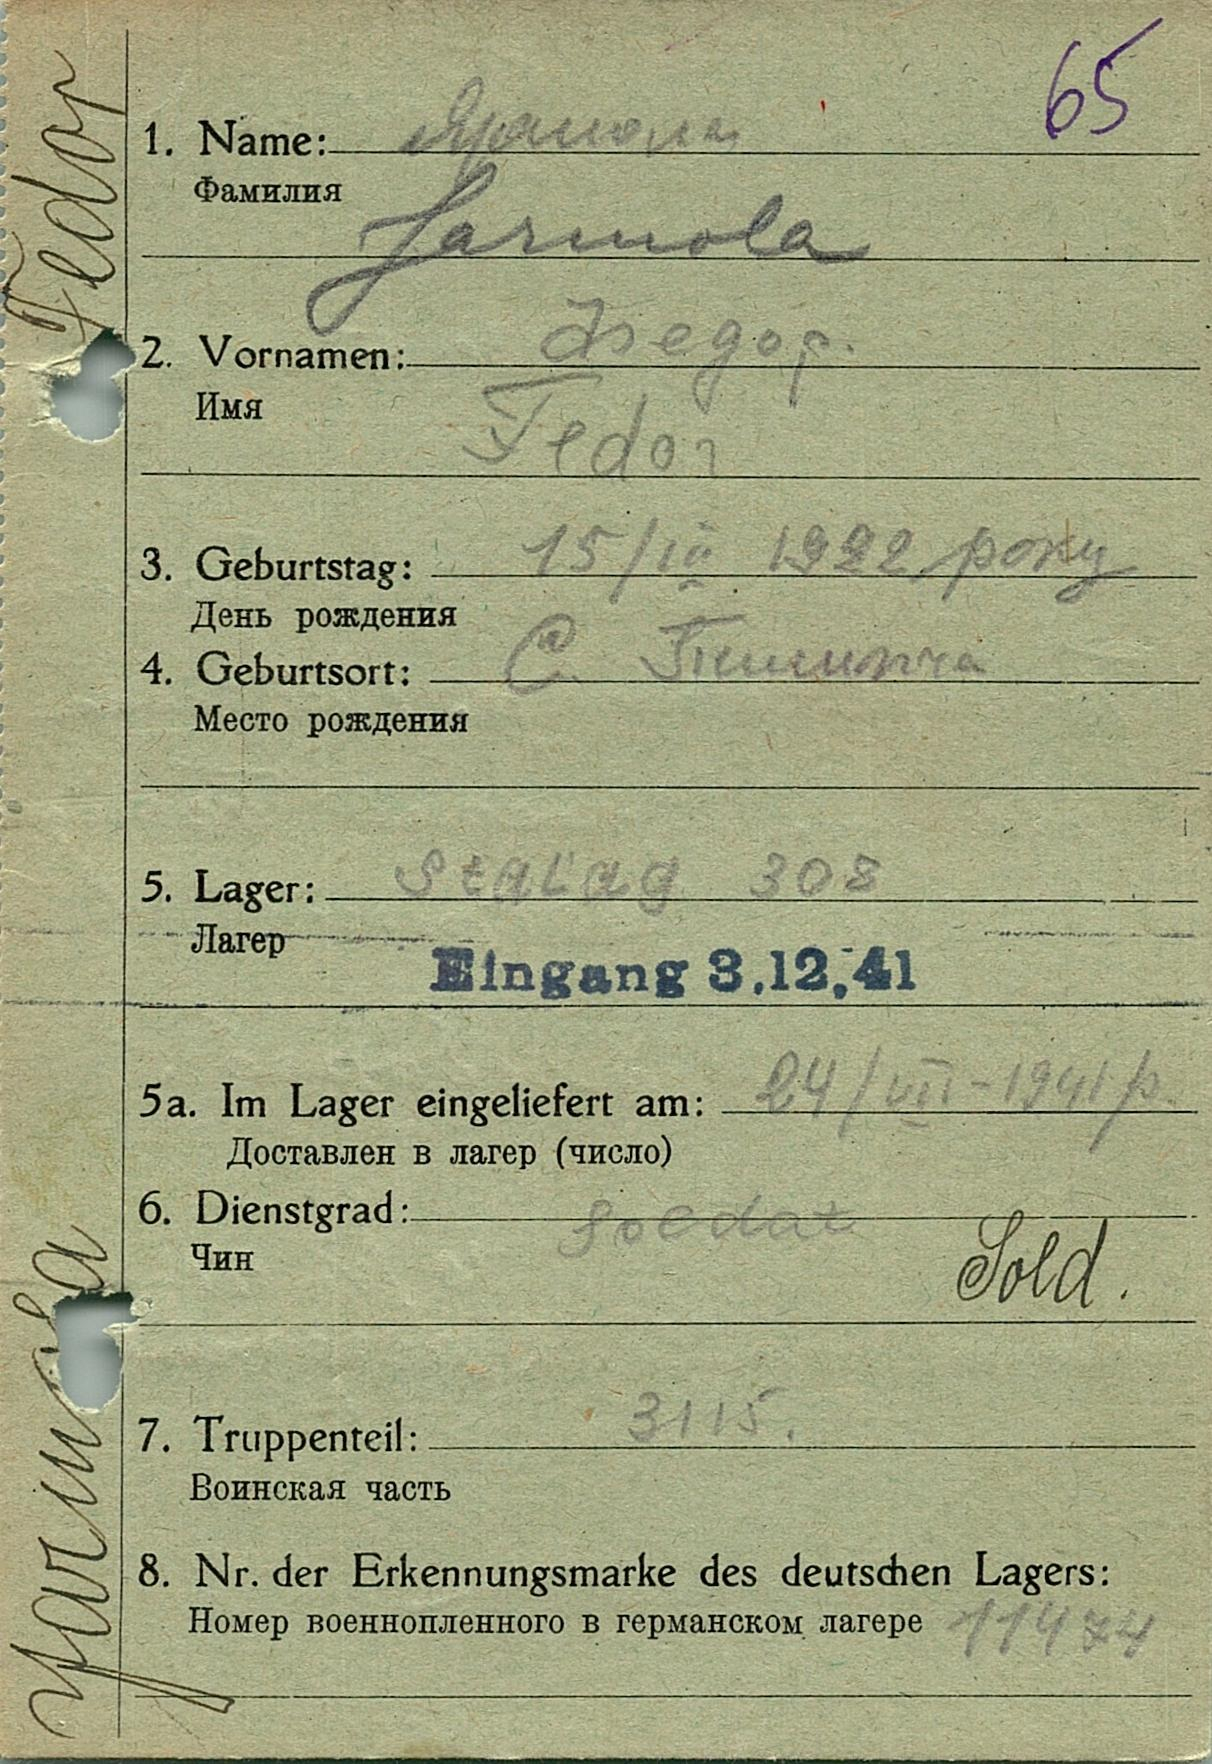 65
1. Name: Ярмола
Фамилия
Jarmola
2. Vornamen: Федор.
Имя
Fedor
3. Geburtstag: 15/III 1922 року
День рождения
4. Geburtsort: С.
Место рождения
5. Lager: Stalag 308
Лагер
Eingang 3.12.41
5a. Im Lager eingeliefert am: 24/VII-1941 р.
Доставлен в лагер (число)
6. Dienstgrad: Soldat
Чин
Sold.
7. Truppenteil: 3115.
Воинская часть
8. Nr. der Erkennungsmarke des deutschen Lagers:
Номер военнопленного в германском лагере 11474
Jarmola Fedor